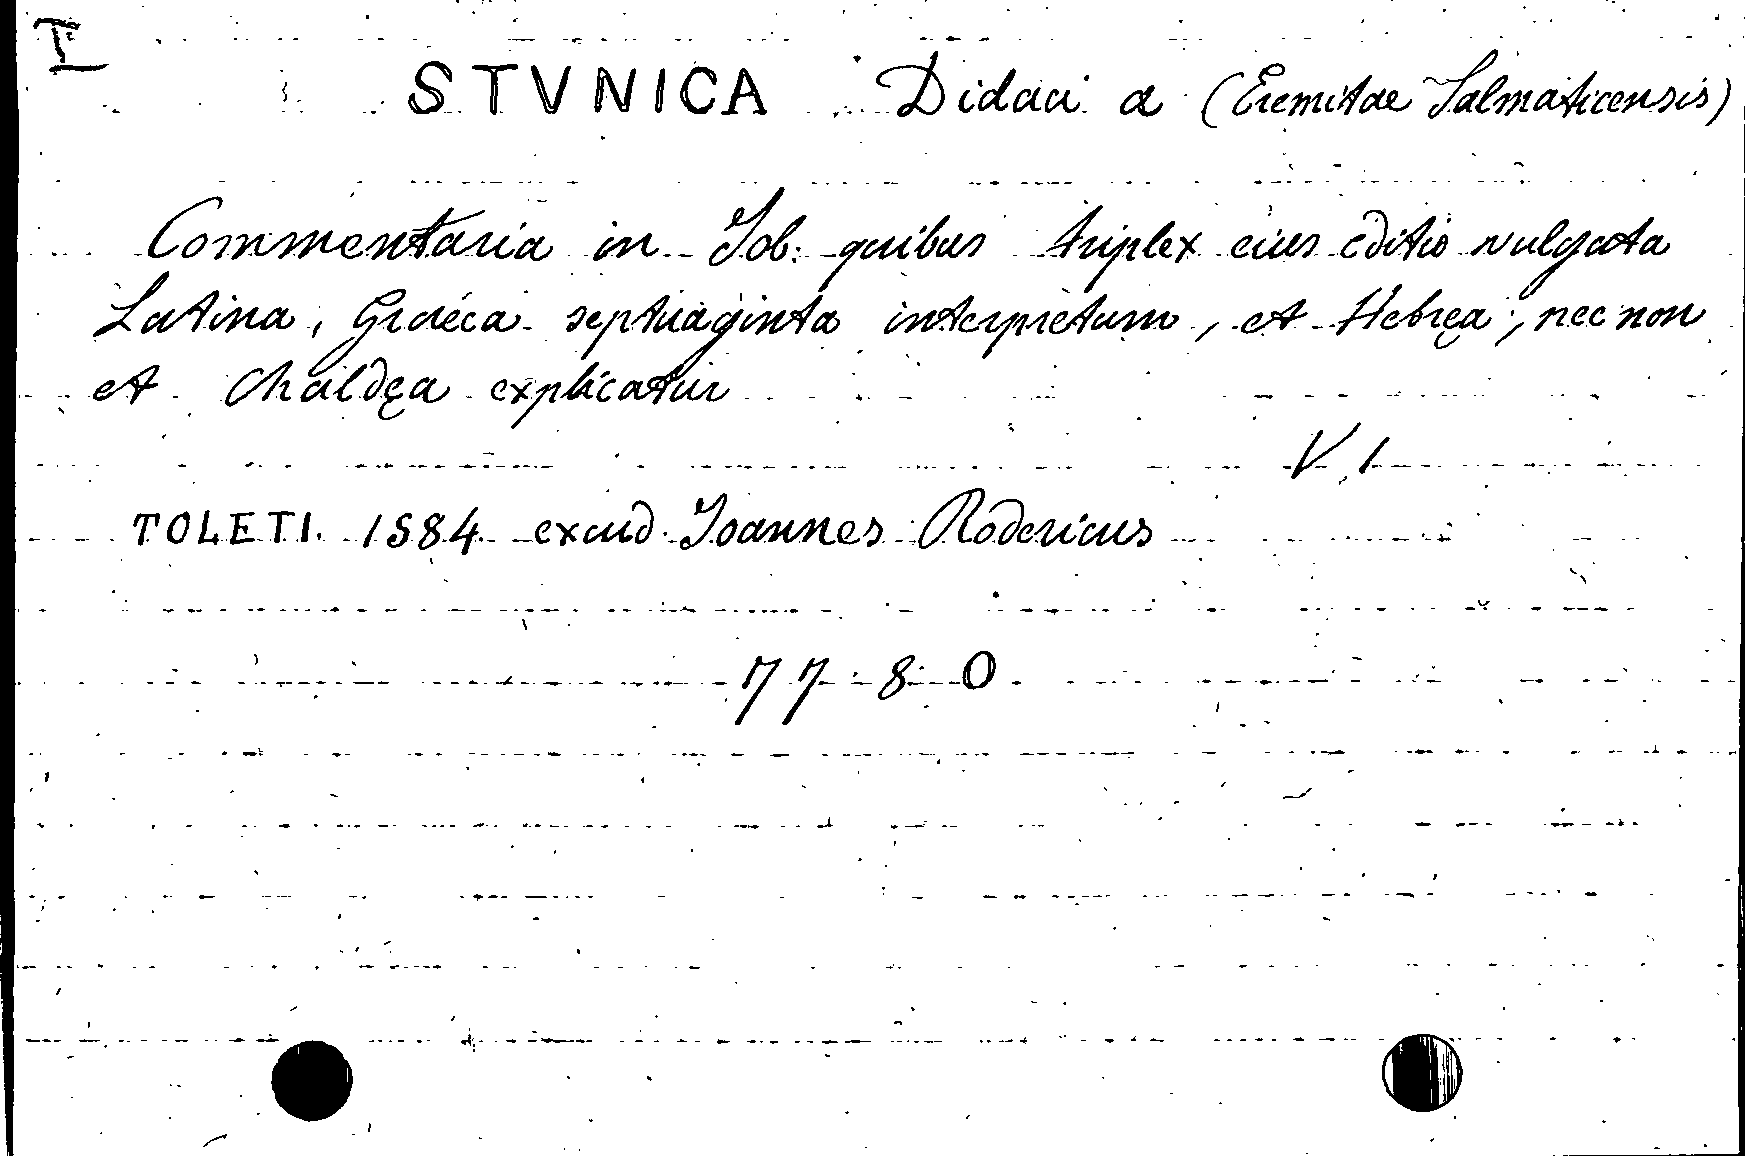 I
STVNICA Didaci a (Eremitae Salmaticensis)
Commentaria in Job. quibus triplex eius editio vulgata
Latina, Graeca septuaginta interpretum, et Hebręa, nec non
et Chaldęa explicatur
V. 1
TOLETI. 1584 excud Joannes Rodericus
77 8 0